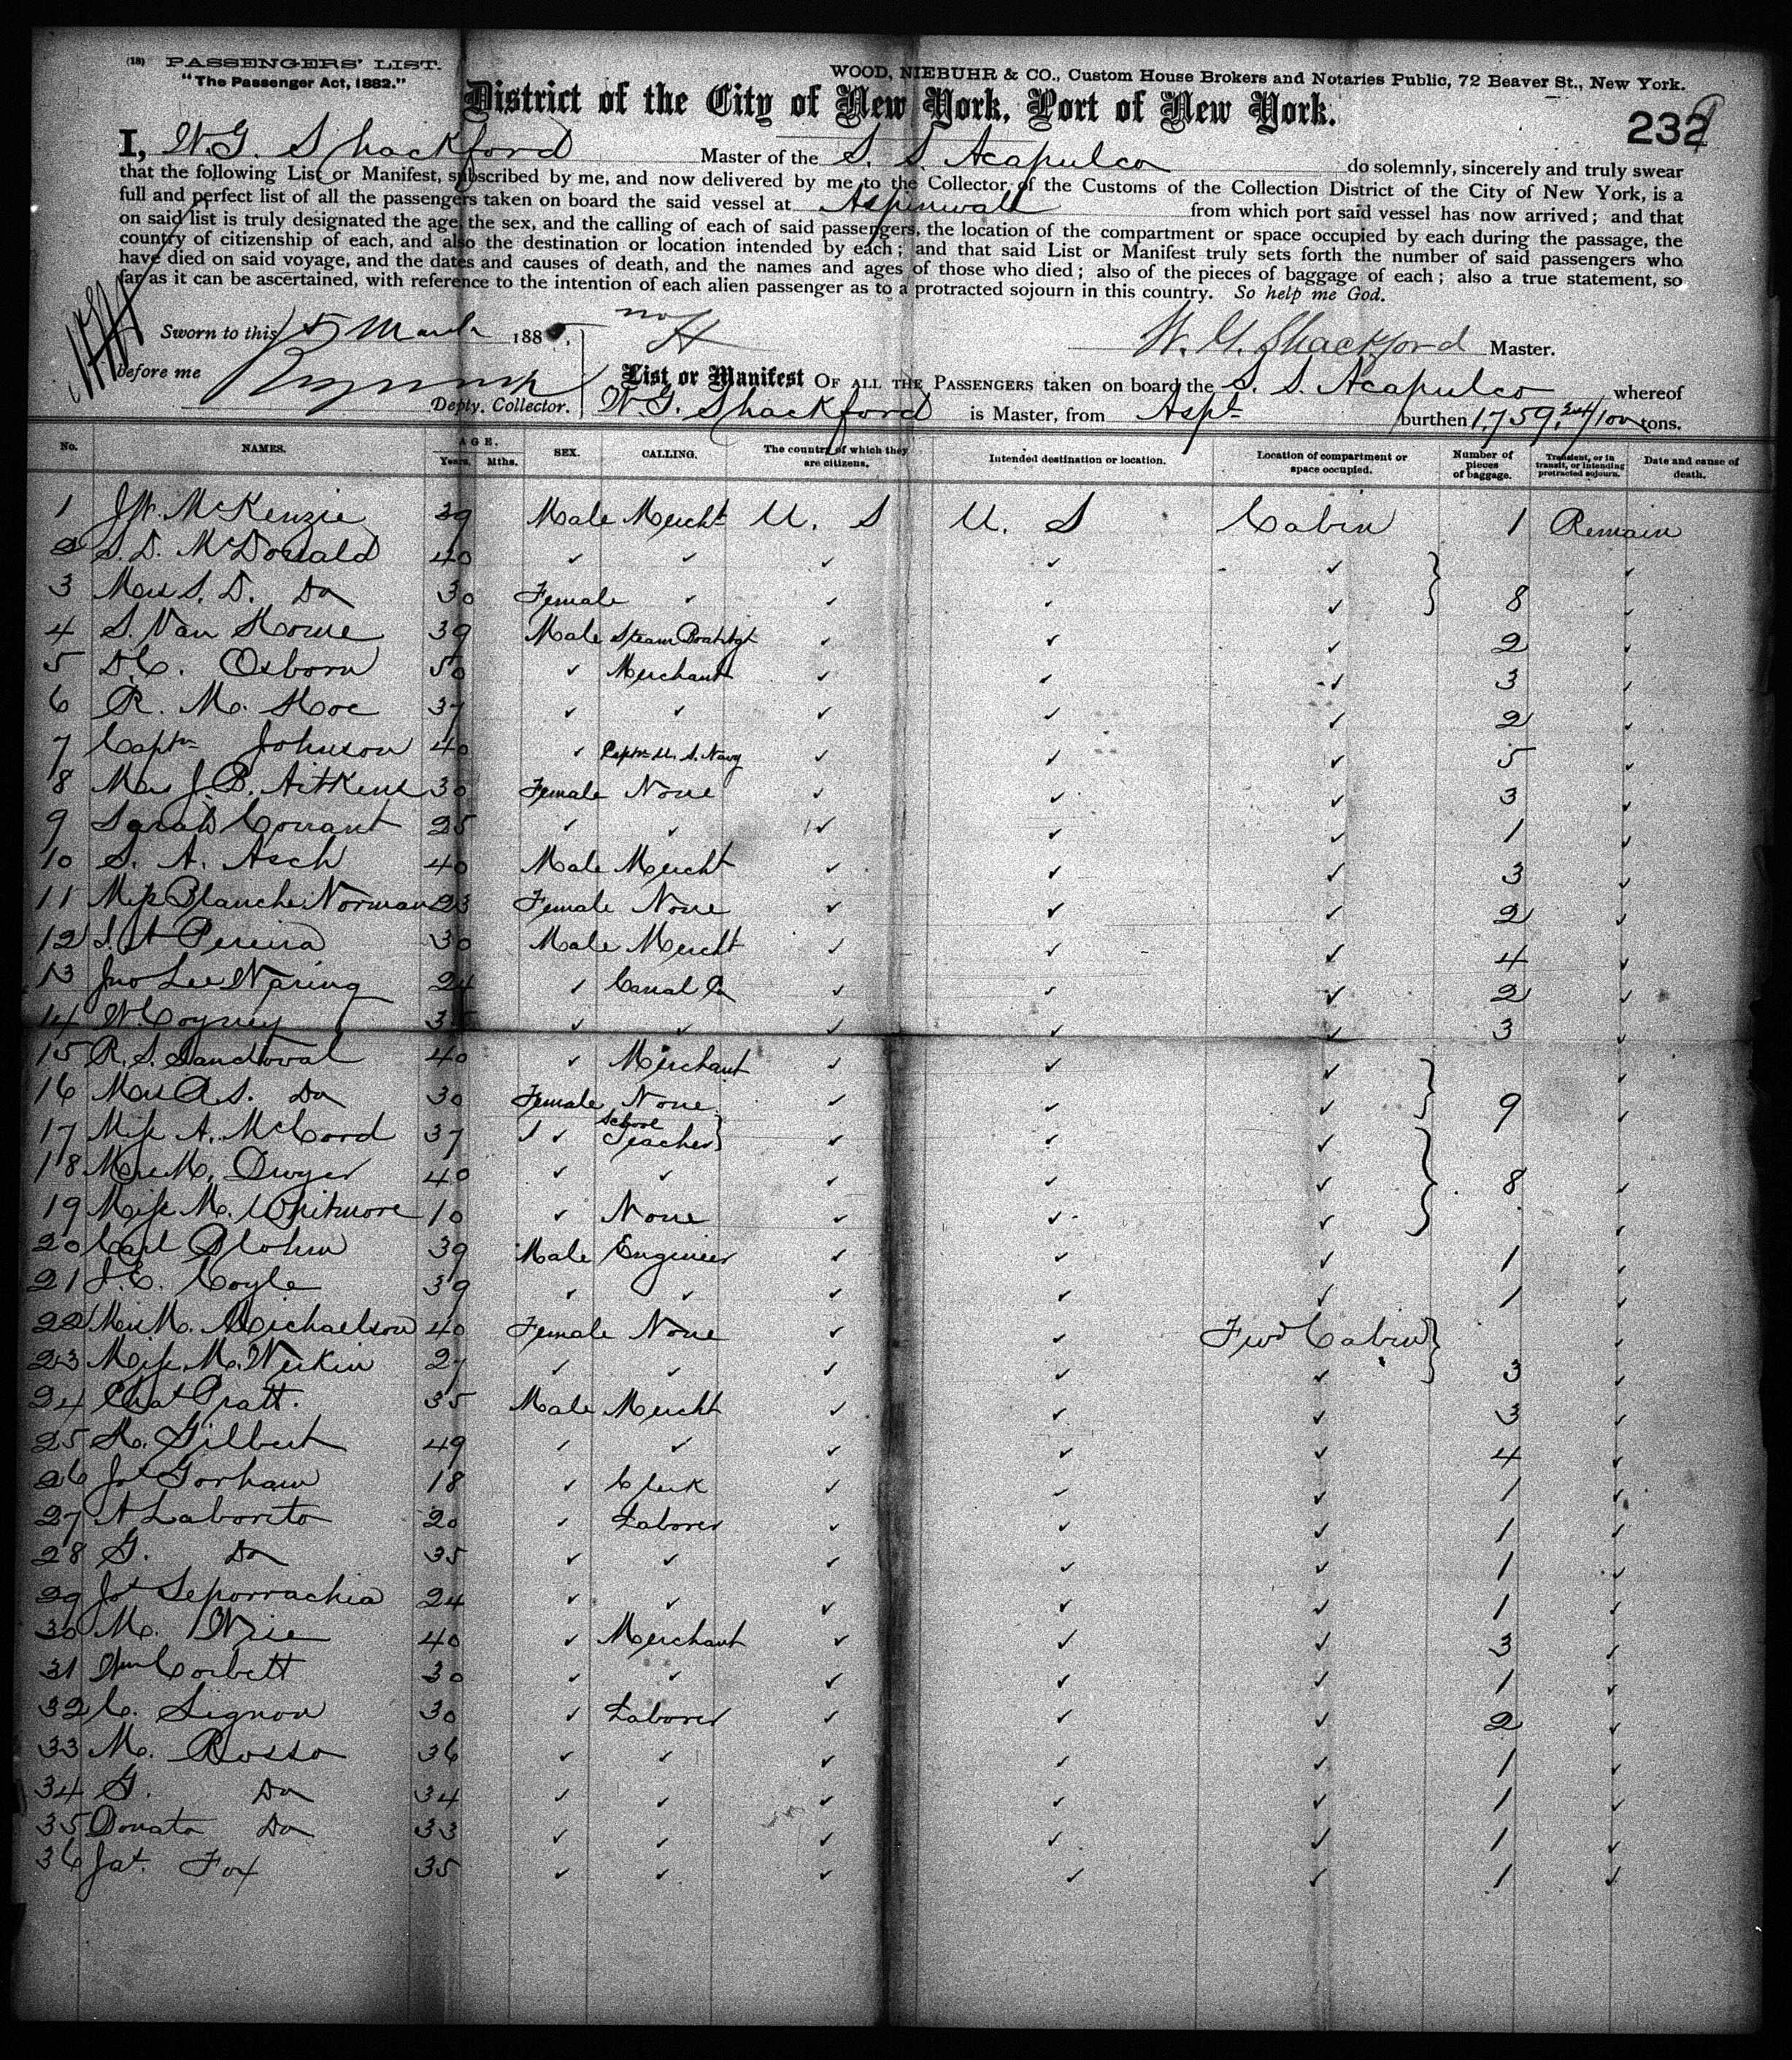 (18) PASSENGERS' LIST.
"The Passenger Act, 1882."
WOOD, NIEBUHR & CO., Custom House Brokers and Notaries Public, 72 Beaver St., New York.
District of the City of New York, Port of New York.
232
I, W.G. Shackford Master of the S. S Acapulco do solemnly, sincerely and truly swear
that the following List or Manifest, subscribed by me, and now delivered by me to the Collector of the Customs of the Collection District of the City of New York, is a
full and perfect list of all the passengers taken on board the said vessel at Aspinwall from which port said vessel has now arrived; and that
on said list is truly designated the age, the sex, and the calling of each of said passengers, the location of the compartment or space occupied by each during the passage, the
country of citizenship of each, and also the destination or location intended by each; and that said List or Manifest truly sets forth the number of said passengers who
have died on said voyage, and the dates and causes of death, and the names and ages of those who died; also of the pieces of baggage of each; also a true statement, so
far as it can be ascertained, with reference to the intention of each alien passenger as to a protracted sojourn in this country. So help me God.
Sworn to this 5 March 188
W. G. Shackford Master.
before me
Depty. Collector.
List or Manifest OF ALL THE PASSENGERS taken on board the S. S. Acapulco whereof
W. G. Shackford is Master, from Aspl burthen 1,759 34/100 tons.
No. NAMES. AGE. Years. Mths. SEX. CALLING. The country of which they are citizens. Intended destination or location. Location of compartment or space occupied. Number of pieces of baggage. Transient, or in transit, or intending protracted sojourn. Date and cause of death.
1 J.W. McKenzie 39 Male Mercht U. S U. S Cabin 1 Remain
2 S. D. McDonald 40 ✓ ✓ ✓ ✓ ✓ ✓
3 Mrs S. D. Do 30 Female ✓ ✓ ✓ ✓ 8 ✓
4 S. Van Horne 39 Male Steam Boat Agt ✓ ✓ ✓ 2 ✓
5 D.C. Osborn 50 ✓ Merchant ✓ ✓ ✓ 3 ✓
6 R. M. Hoe 37 ✓ ✓ ✓ ✓ ✓ 2 ✓
7 Captn Johnson 40 ✓ Captn U. S. Navy ✓ ✓ ✓ 5 ✓
8 Mrs J. B. Aitkens 30 Female None ✓ ✓ ✓ 3 ✓
9 Sarah Conant 25 ✓ ✓ ✓ ✓ ✓ 1 ✓
10 S. A. Asch 40 Male Mercht ✓ ✓ ✓ 3 ✓
11 Miss Blanche Norman 23 Female None ✓ ✓ ✓ 2 ✓
12 Pereira 30 Male Mercht ✓ ✓ ✓ 4 ✓
13 Jno Lee Waring 24 ✓ Canal Co ✓ ✓ ✓ 2 ✓
14 35 ✓ ✓ ✓ ✓ ✓ 3 ✓
15 R. S. Sandoval 40 ✓ Merchant ✓ ✓ ✓ ✓
16 Mrs R. S. Do 30 Female None ✓ ✓ ✓ 9 ✓
17 Miss A. McCord 37 ✓ School Teacher ✓ ✓ ✓
18 Mrs M. Dwyer 40 ✓ ✓ ✓ ✓ ✓ 8 ✓
19 Miss M. Whitmore 10 ✓ None ✓ ✓ ✓ ✓
20 Carl Blohm 39 Male Engineer ✓ ✓ ✓ 1 ✓
21 J. E. Coyle 39 ✓ ✓ ✓ ✓ ✓ 1 ✓
22 Mrs M. Michaelson 40 Female None ✓ ✓ Fwd Cabin ✓
23 Miss M. 27 ✓ ✓ ✓ ✓ ✓ 3 ✓
24 Chas Pratt. 35 Male Mercht ✓ ✓ ✓ 3 ✓
25 H. Gilbert 49 ✓ ✓ ✓ ✓ ✓ 4 ✓
26 Jos Gorham 18 ✓ Clerk ✓ ✓ ✓ 1 ✓
27 A Laborito 20 ✓ Laborer ✓ ✓ ✓ 1 ✓
28 G. Do 35 ✓ ✓ ✓ ✓ ✓ 1 ✓
29 Jos Seporrachia 24 ✓ ✓ ✓ ✓ ✓ 1 ✓
30 M. 40 ✓ Merchant ✓ ✓ ✓ 3 ✓
31 Wm Corbett 30 ✓ ✓ ✓ ✓ ✓ 1 ✓
32 C. Signon 30 ✓ Laborer ✓ ✓ ✓ 2 ✓
33 M. Rosso 36 ✓ ✓ ✓ ✓ ✓ 1 ✓
34 G. Do 34 ✓ ✓ ✓ ✓ ✓ 1 ✓
35 Donato Do 33 ✓ ✓ ✓ ✓ ✓ 1 ✓
36 Jas. Fox 35 ✓ ✓ ✓ ✓ ✓ 1 ✓